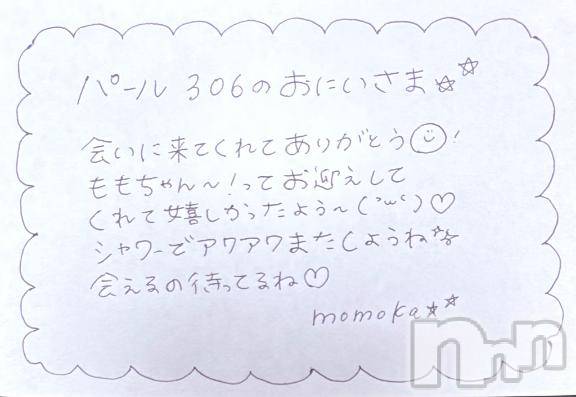 パール 306のおにいさま☆☆
会いに来てくれてありがとう☺!
ももちゃん〜!ってお迎えして
くれて嬉しかったよう〜('ω')♡
シャワーでアワアワまたしようね☆
会えるの待ってるね♡
momoka☆☆
nnn